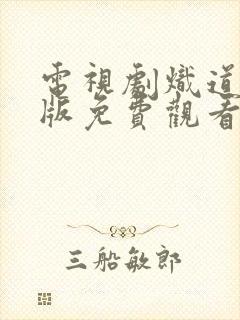 電視劇熾道
版免費觀看
三船敏郎